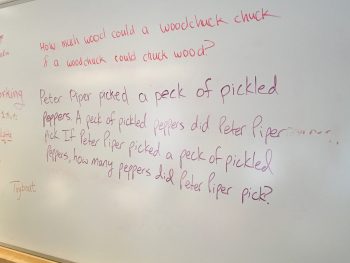 How much wood could a woodchuck chuck
if a woodchuck could chuck wood?
Peter Piper picked a peck of pickled
Peppers. A peck of pickled peppers did Peter Piper
pick If Peter Piper picked a peck of pickled
Peppers, how many peppers did Peter Piper pick?